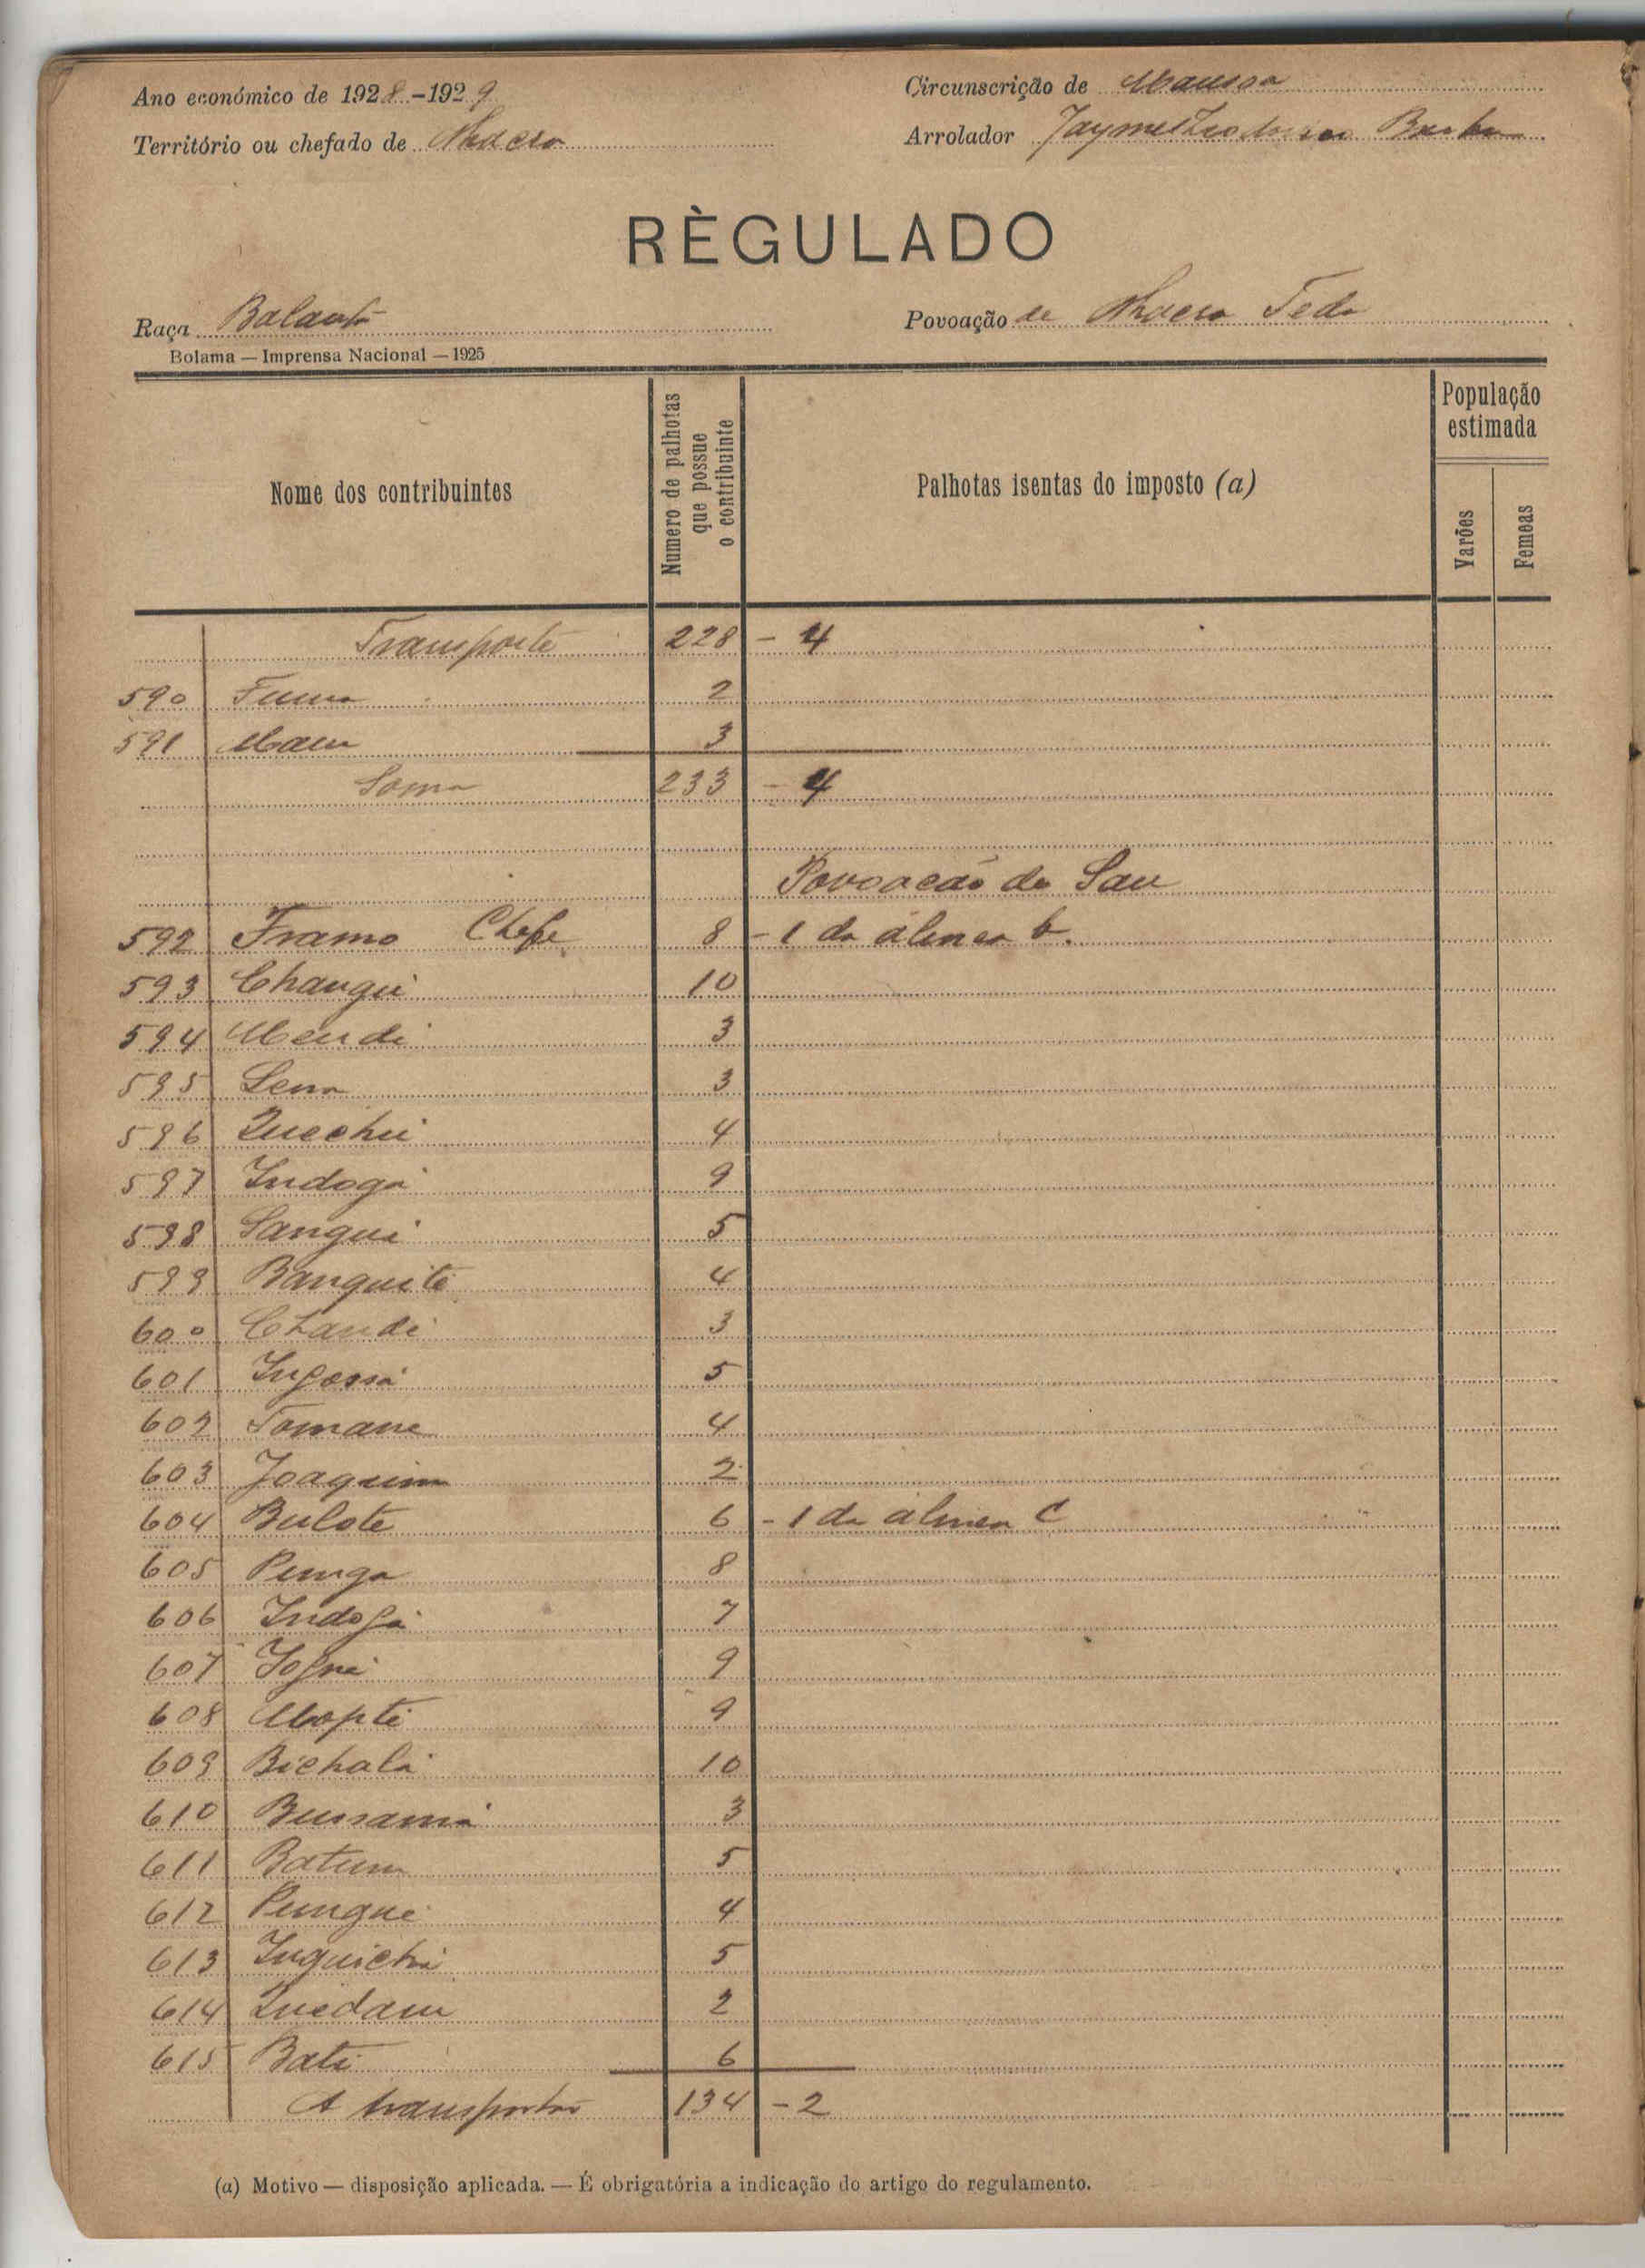 Ano económico de 1928-1929
Circunscrição de Mansoa
Território ou chefado de Nhacra
Arrolador Jayme
RÈGULADO
Raça Balanta
Povoação de Nhacra Teda
Bolama — Imprensa Nacional — 1925
Nome dos contribuintes
Numero de palhotas que possue o contribuinte
Palhotas isentas do imposto (a)
População estimada
Varões
Femeas
Transporte 228 - 4
590 Fuma 2
591 3
Soma 233 - 4
Povoação de Sau
592 Framo Chefe 8 - 1 da alinea b.
593 Changui 10
594 Mendi 3
595 Sena 3
596 Quechu 4
597 Indoga 9
598 Sangui 5
599 Banguite 4
600 Chandi 3
601 5
602 Tomane 4
603 Joaquim 2
604 Bulote 6 - 1 da alinea C
605 Punga 8
606 Indofa 7
607 9
608 Mopte 9
609 Bichala 10
610 3
611 Batum 5
612 Pungue 4
613 Inquicha 5
614 Quedam 2
615 Bati 6
A transportar 134 - 2
(a) Motivo — disposição aplicada. — É obrigatória a indicação do artigo do regulamento.